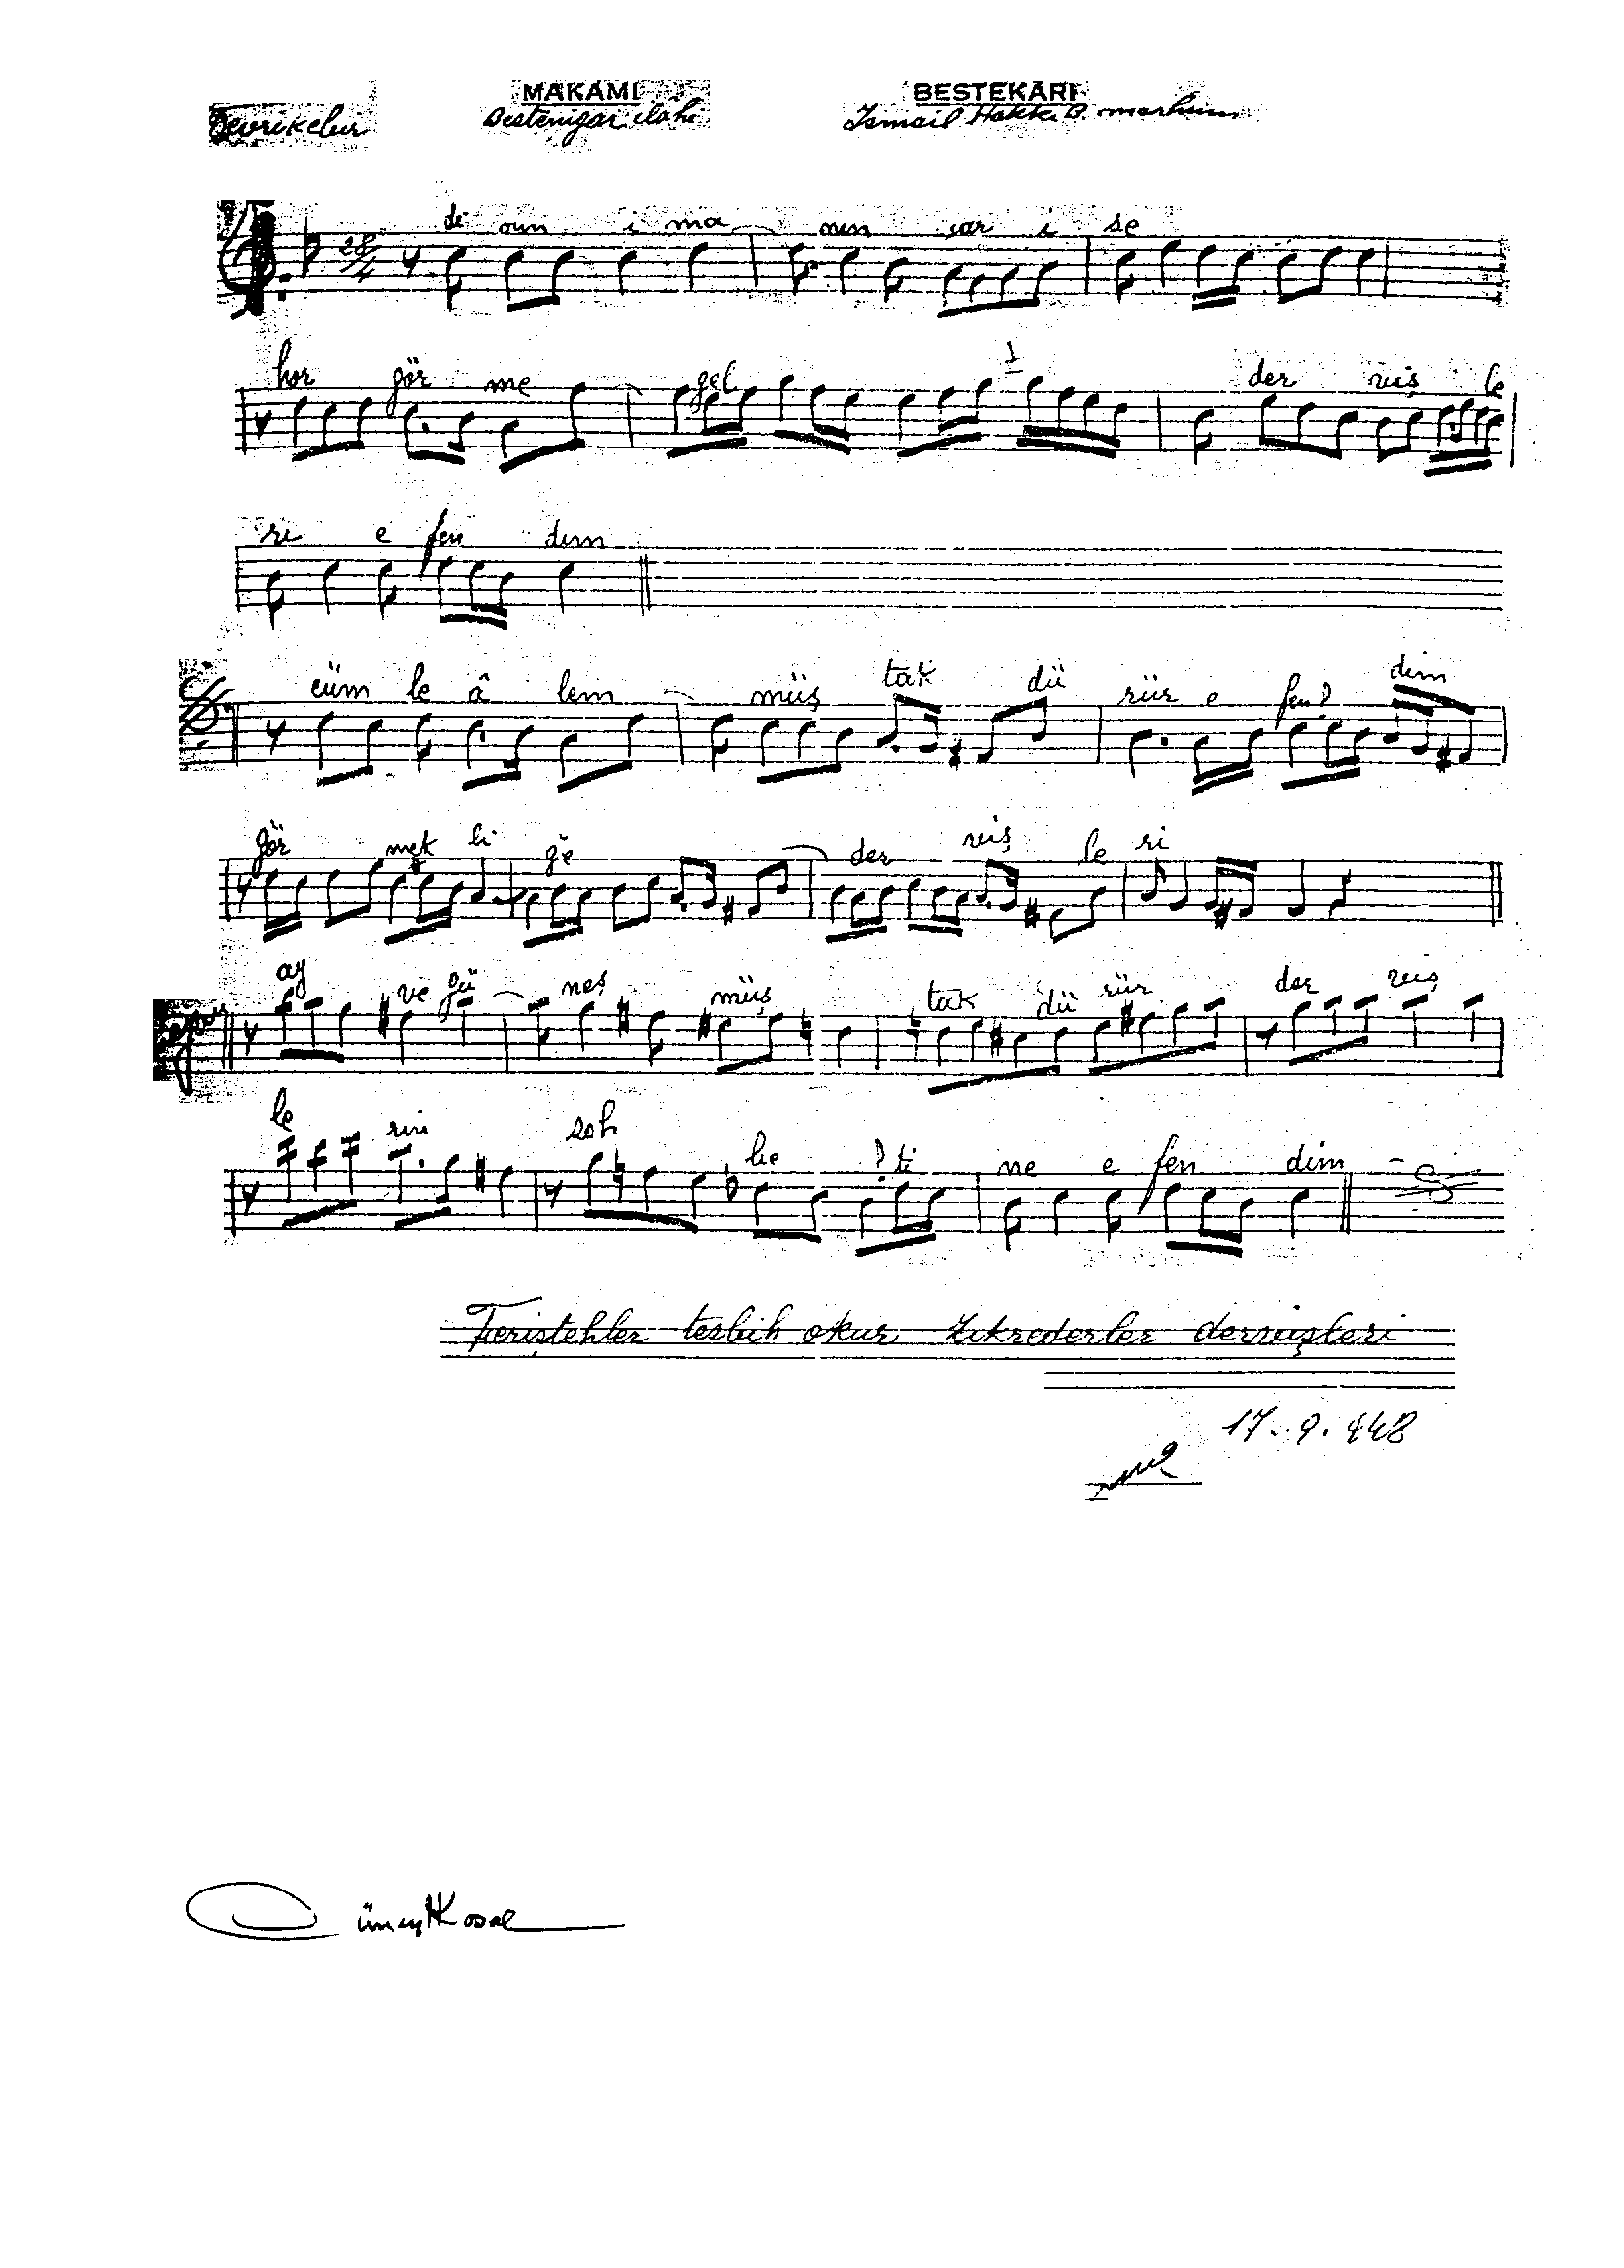 MAKAMI BESTEKÂRI
Devrikebir Bestenigar ilâhi İsmail Hakkı B. merhum
28/4
di nin i ma nın var i se
hor gör me gel der viş le
ri e fen dim
cüm le â lem müş tak dü rür e fen dim
gör mek li ğe der viş le ri
ay ve gü neş müş tak dü rür der viş
le rin soh be ti ne e fen dim
Feriştehler tesbih okur zikrederler dervişleri
17.9.948
Cüneyt Kosal